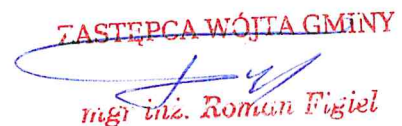 ZASTĘPCA WÓJTA GMINY
mgr inż. Roman Figiel